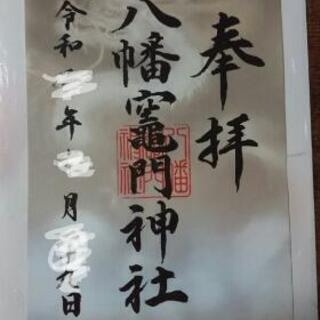 奉拝
八幡竈門神社
令和 年 月 九日